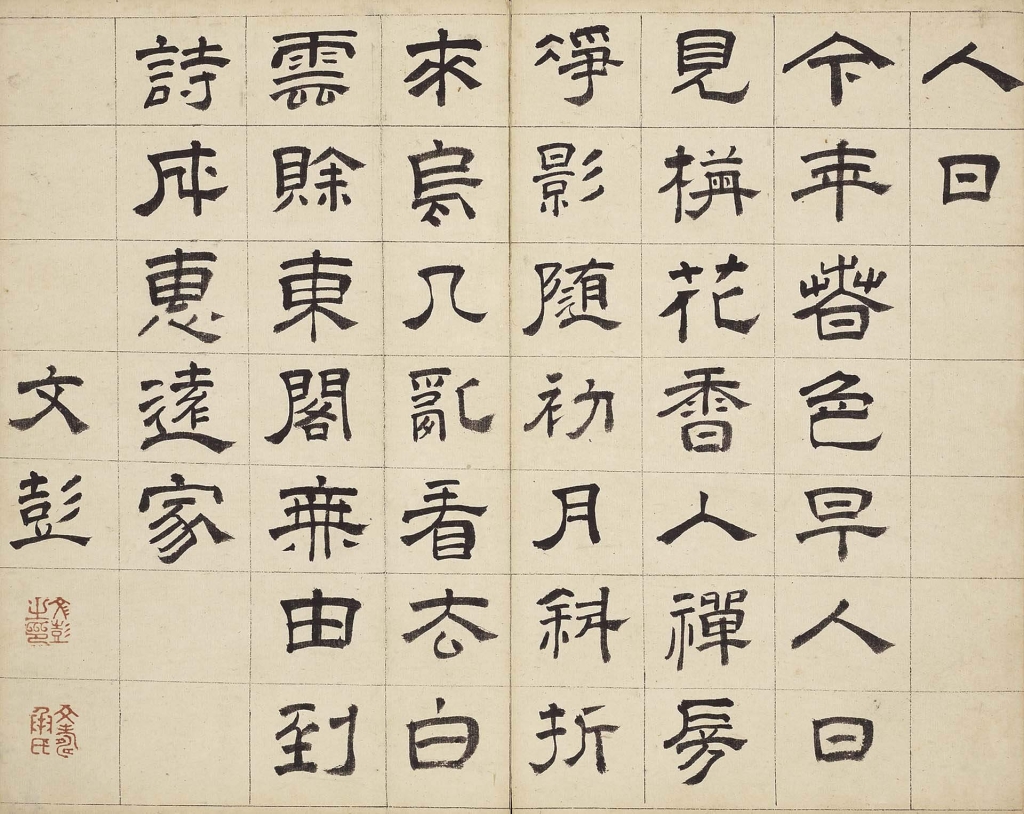 人日
今年春色早人日
見梅花香入禪房
淨影随初月斜折
來烏几亂看去白
雲賒東閣無由到
詩成惠遠家
文彭
文彭之印
文壽承氏